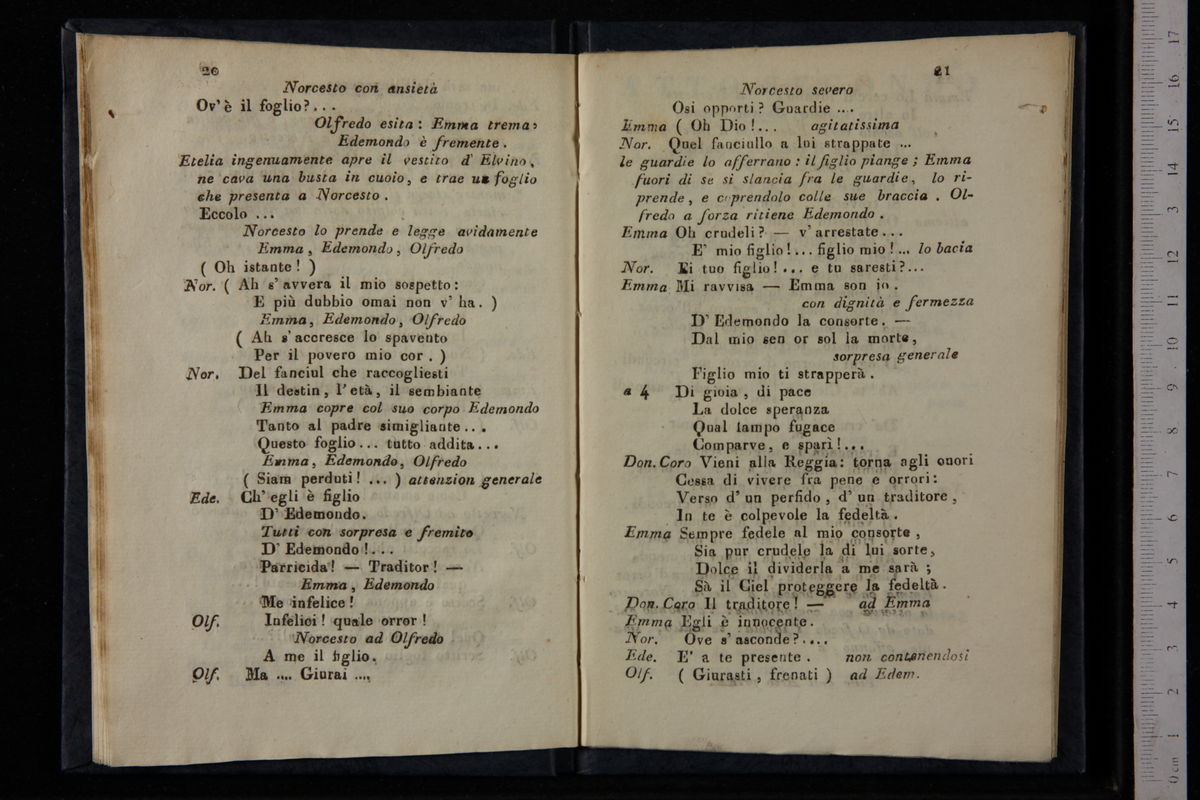 20
Norcesto con ansietà
Ov'è il foglio?...
Olfredo esita: Emma trema,
Edemondo è fremente.
Etelia ingenuamente apre il vestito d' Elvino,
ne cava una busta in cuoio, e trae un foglio
che presenta a Norcesto.
Eccolo ...
Norcesto lo prende e legge avidamente
Emma, Edemondo, Olfredo
( Oh istante! )
Nor. ( Ah s' avvera il mio sospetto:
E più dubbio omai non v' ha. )
Emma, Edemondo, Olfredo
( Ah s' accresce lo spavento
Per il povero mio cor. )
Nor. Del fanciul che raccogliesti
Il destin, l' età, il sembiante
Emma copre col suo corpo Edemondo
Tanto al padre simigliante...
Questo foglio... tutto addita...
Emma, Edemondo, Olfredo
( Siam perduti! ... ) attenzion generale
Ede. Ch' egli è figlio
D' Edemondo.
Tutti con sorpresa e fremito
D' Edemondo!...
Parricida! — Traditor! —
Emma, Edemondo
Me infelice!
Olf. Infelici! quale orror!
Norcesto ad Olfredo
A me il figlio.
Olf. Ma .... Giurai ....
21
Norcesto severo
Osi opporti? Guardie ....
Emma ( Oh Dio!... agitatissima
Nor. Quel fanciullo a lui strappate ...
le guardie lo afferrano: il figlio piange; Emma
fuori di se si slancia fra le guardie, lo ri-
prende, e coprendolo colle sue braccia. Ol-
fredo a forza ritiene Edemondo.
Emma Oh crudeli? — v' arrestate...
E' mio figlio!... figlio mio!... lo bacia
Nor. Ei tuo figlio!... e tu saresti?...
Emma Mi ravvisa — Emma son io.
con dignità e fermezza
D' Edemondo la consorte. —
Dal mio sen or sol la morte,
sorpresa generale
Figlio mio ti strapperà.
a 4 Di gioia, di pace
La dolce speranza
Qual lampo fugace
Comparve, e sparì!...
Don. Coro Vieni alla Reggia: torna agli onori
Cessa di vivere fra pene e orrori:
Verso d' un perfido, d' un traditore,
In te è colpevole la fedeltà.
Emma Sempre fedele al mio consorte,
Sia pur crudele la di lui sorte,
Dolce il dividerla a me sarà;
Sà il Ciel proteggere la fedeltà.
Don. Coro Il traditore! — ad Emma
Emma Egli è innocente.
Nor. Ove s' asconde?....
Ede. E' a te presente. non contenendosi
Olf. ( Giurasti, frenati ) ad Edem.
0 cm 1 2 3 4 5 6 7 8 9 10 11 12 13 14 15 16 17